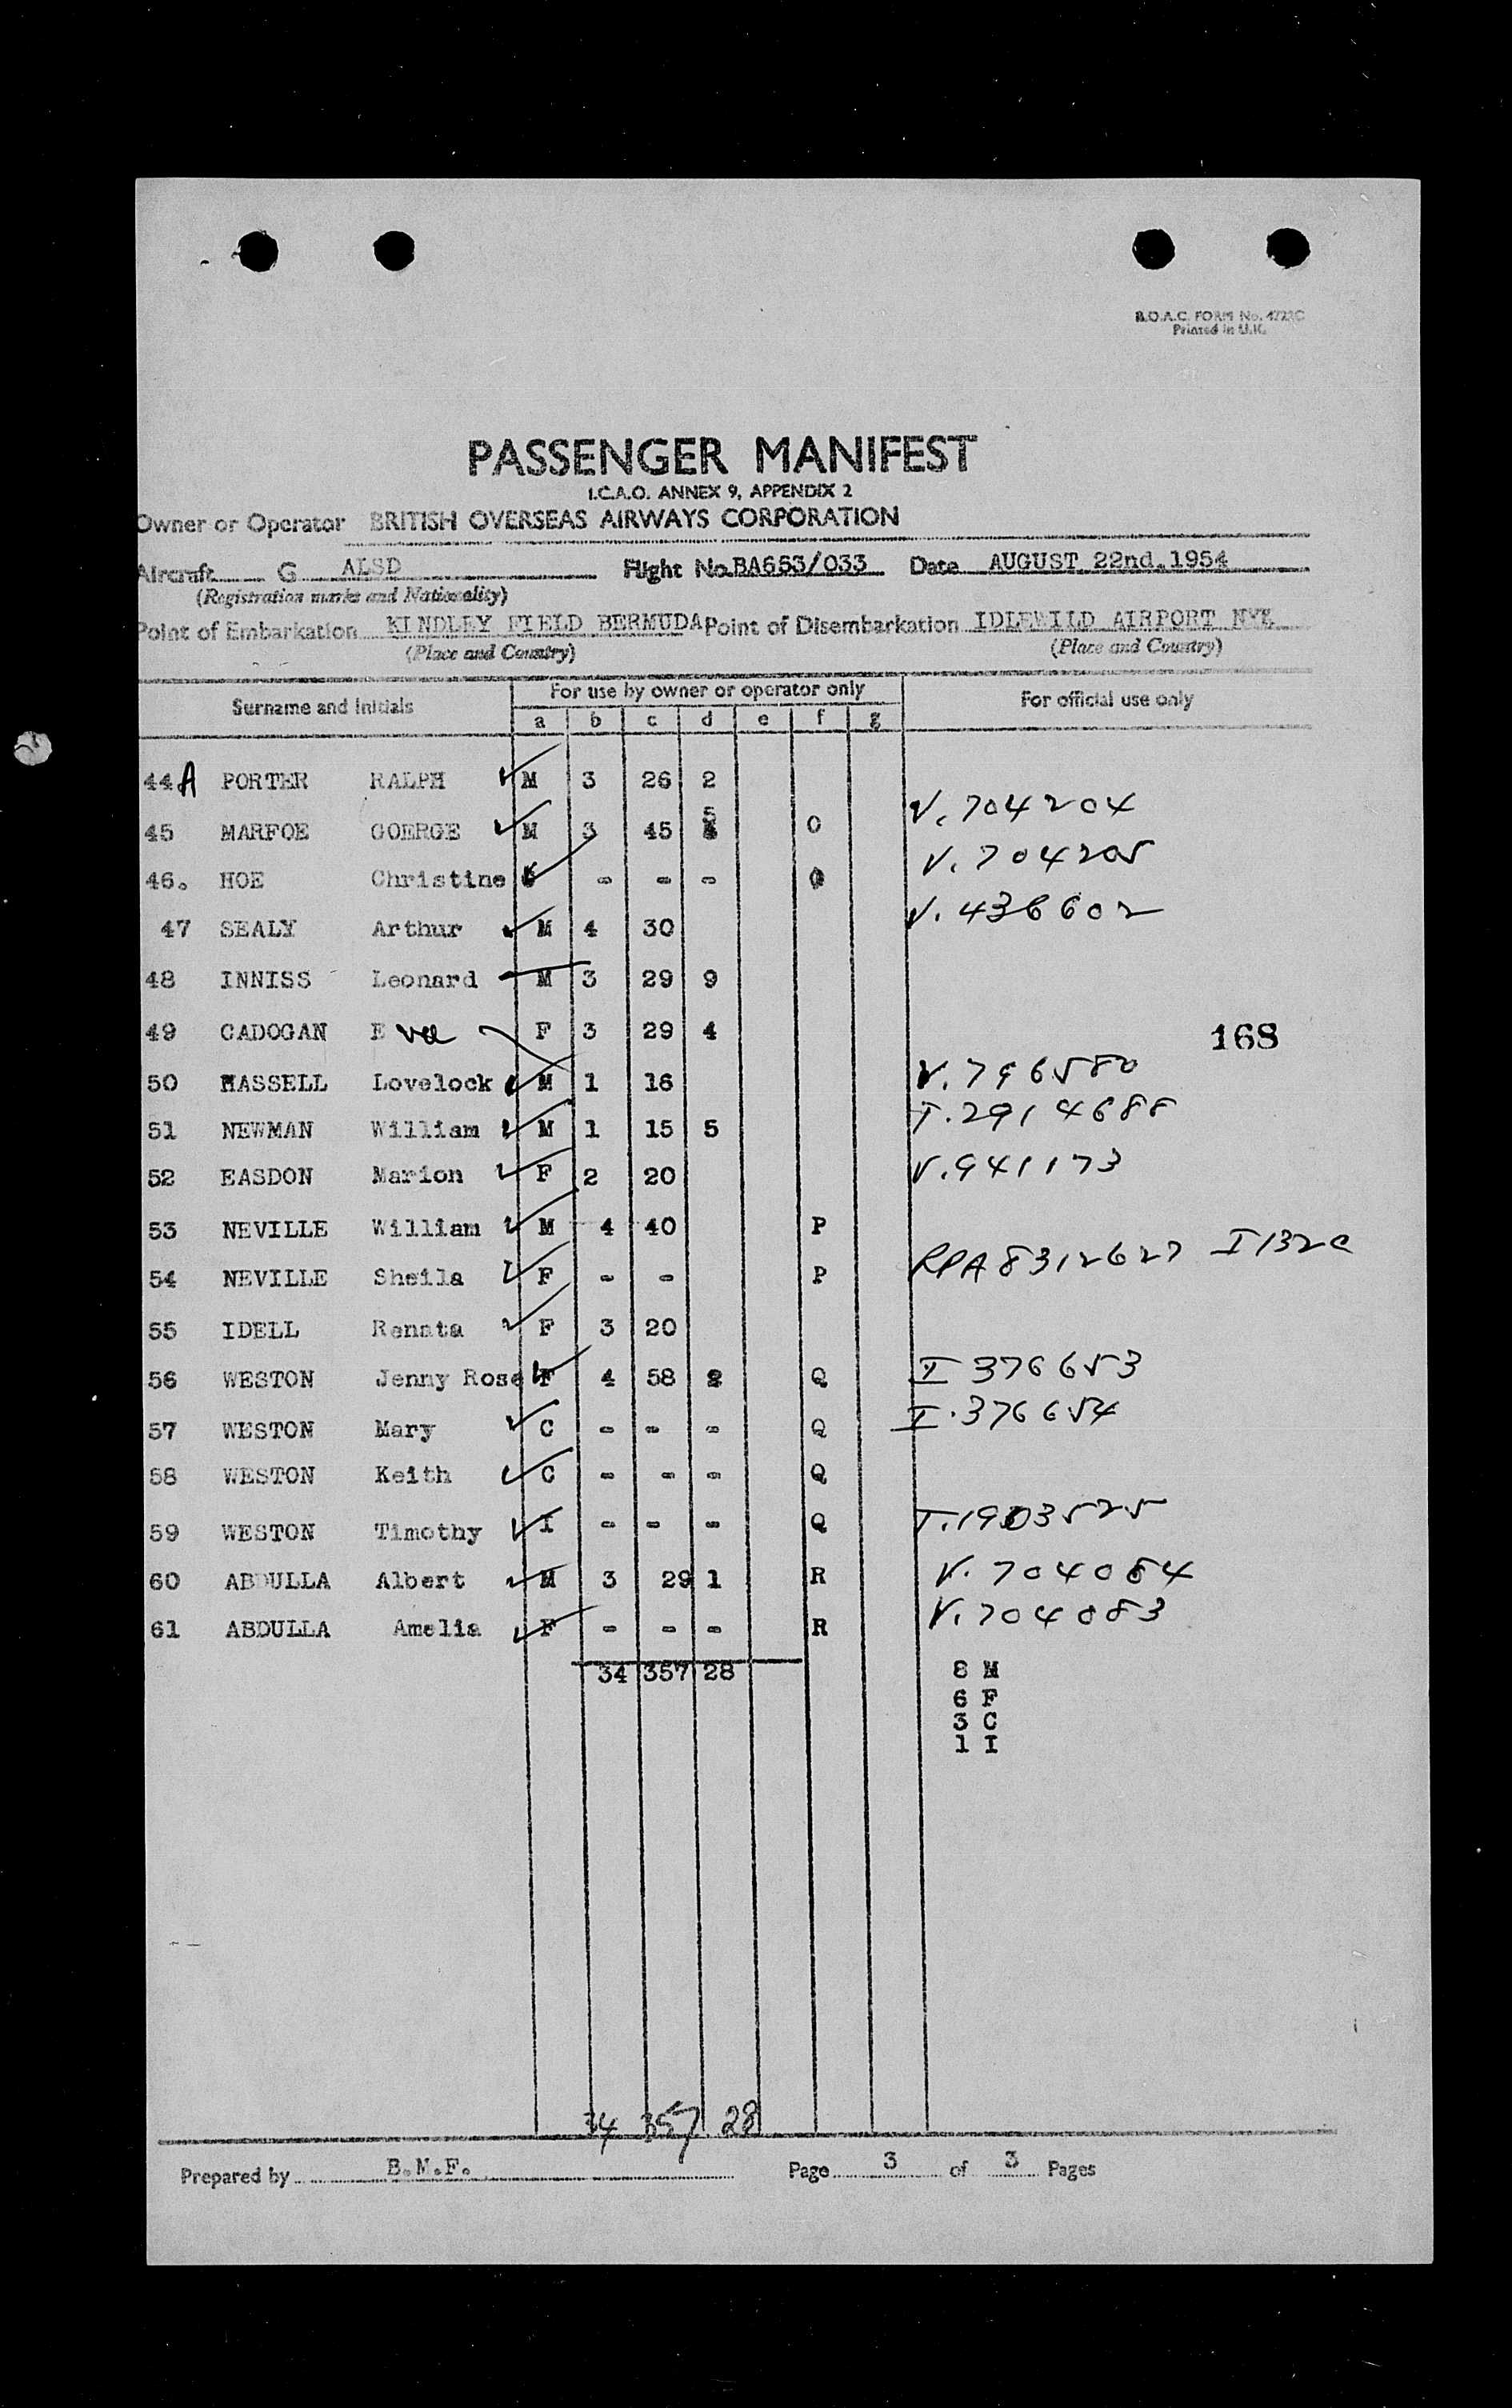 B.O.A.C. FORM No. 4721C
Printed in U.K.
PASSENGER MANIFEST
I.C.A.O. ANNEX 9, APPENDIX 2
Owner or Operator BRITISH OVERSEAS AIRWAYS CORPORATION
Aircraft G ALSD Flight No. BA653/033 Date AUGUST 22nd.1954
(Registration marks and Nationality)
Point of Embarkation KINDLEY FIELD BERMUDA Point of Disembarkation IDLEWILD AIRPORT NYK
(Place and Country) (Place and Country)
Surname and Initials For use by owner or operator only For official use only
a b c d e f g
44A PORTER RALPH M 3 26 2
V.704204
45 MARFOE GOERGE M 3 45 5 O
V.704205
46. HOE Christine - - -
V.436602
47 SEALY Arthur M 4 30
48 INNISS Leonard M 3 29 9
49 CADOGAN Eva F 3 29 4
168
50 HASSELL Lovelock M 1 16 V.796580
51 NEWMAN William M 1 15 5 T.2914688
52 EASDON Marion F 2 20 V.941173
53 NEVILLE William M 4 40 P
RPA8312627
54 NEVILLE Sheila F - - P
55 IDELL Renata F 3 20
56 WESTON Jenny Rose F 4 58 2 Q I 376653
57 WESTON Mary C - - - Q I.376654
58 WESTON Keith C - - - Q
59 WESTON Timothy I - - - Q
60 ABDULLA Albert M 3 29 1 R V.704084
61 ABDULLA Amelia F - - - R V.704083
34 357 28 8 M
6 F
3 C
1 I
34 357 28
Prepared by B.M.F. Page 3 of 3 Pages